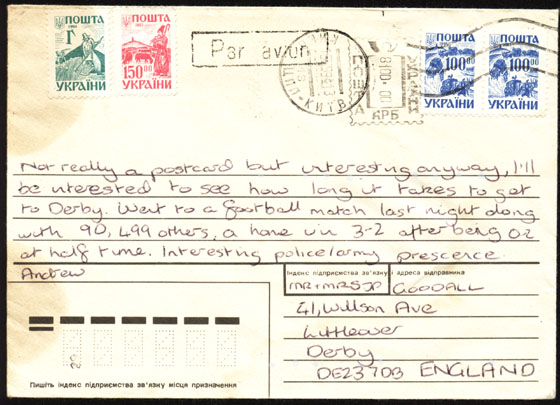 ПОШТА
Г
УКРАЇНИ
ПОШТА
150.00
УКРАЇНИ
Par avion
КИЇВ
УКРАЇНА
АРБ
ПОШТА
100.00
УКРАЇНИ
ПОШТА
100.00
УКРАЇНИ
Not really a postcard but interesting anyway, I'll
be interested to see how long it takes to get
to Derby. Went to a football match last night along
with 90,499 others, a home win 3-2 after being 0-2
at half time. Interesting police/army prescence
Andrew
Індекс підприємства зв'язку і адреса відправника
MR + MRS J D GOODALL
41, Willson Ave
Littleover
Derby
DE23 7DB ENGLAND
Пишіть індекс підприємства зв'язку місця призначення